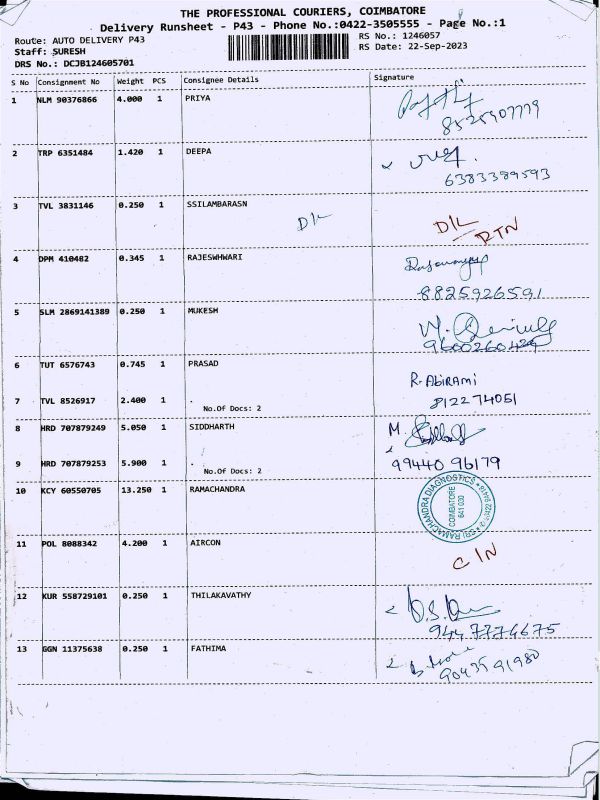 THE PROFESSIONAL COURIERS, COIMBATORE
Delivery Runsheet - P43 - Phone No.:0422-3505555 - Page No.:1
Route: AUTO DELIVERY P43
RS No.: 1246057
Staff: SURESH
RS Date: 22-Sep-2023
DRS No.: DCJB124605701
S No Consignment No Weight PCS Consignee Details Signature
1 NLM 90376866 4.000 1 PRIYA
8525907779
2 TRP 6351484 1.420 1 DEEPA
6383389593
3 TVL 3831146 0.250 1 SSILAMBARASN
D/L D/L
RTN
4 DPM 410482 0.345 1 RAJESWHWARI
8825926591
5 SLM 2869141389 0.250 1 MUKESH
6 TUT 6576743 0.745 1 PRASAD
R. Abirami
7 TVL 8526917 2.400 1 .
812274051
No.Of Docs: 2
8 HRD 707879249 5.050 1 SIDDHARTH
M.
9 HRD 707879253 5.900 1 .
99440 96179
No.Of Docs: 2
10 KCY 60550705 13.250 1 RAMACHANDRA
SRI RAMACHANDRA DIAGNOSTICS
COIMBATORE
11 POL 8088342 4.200 1 AIRCON
C/N
12 KUR 558729101 0.250 1 THILAKAVATHY
9447774675
13 GGN 11375638 0.250 1 FATHIMA